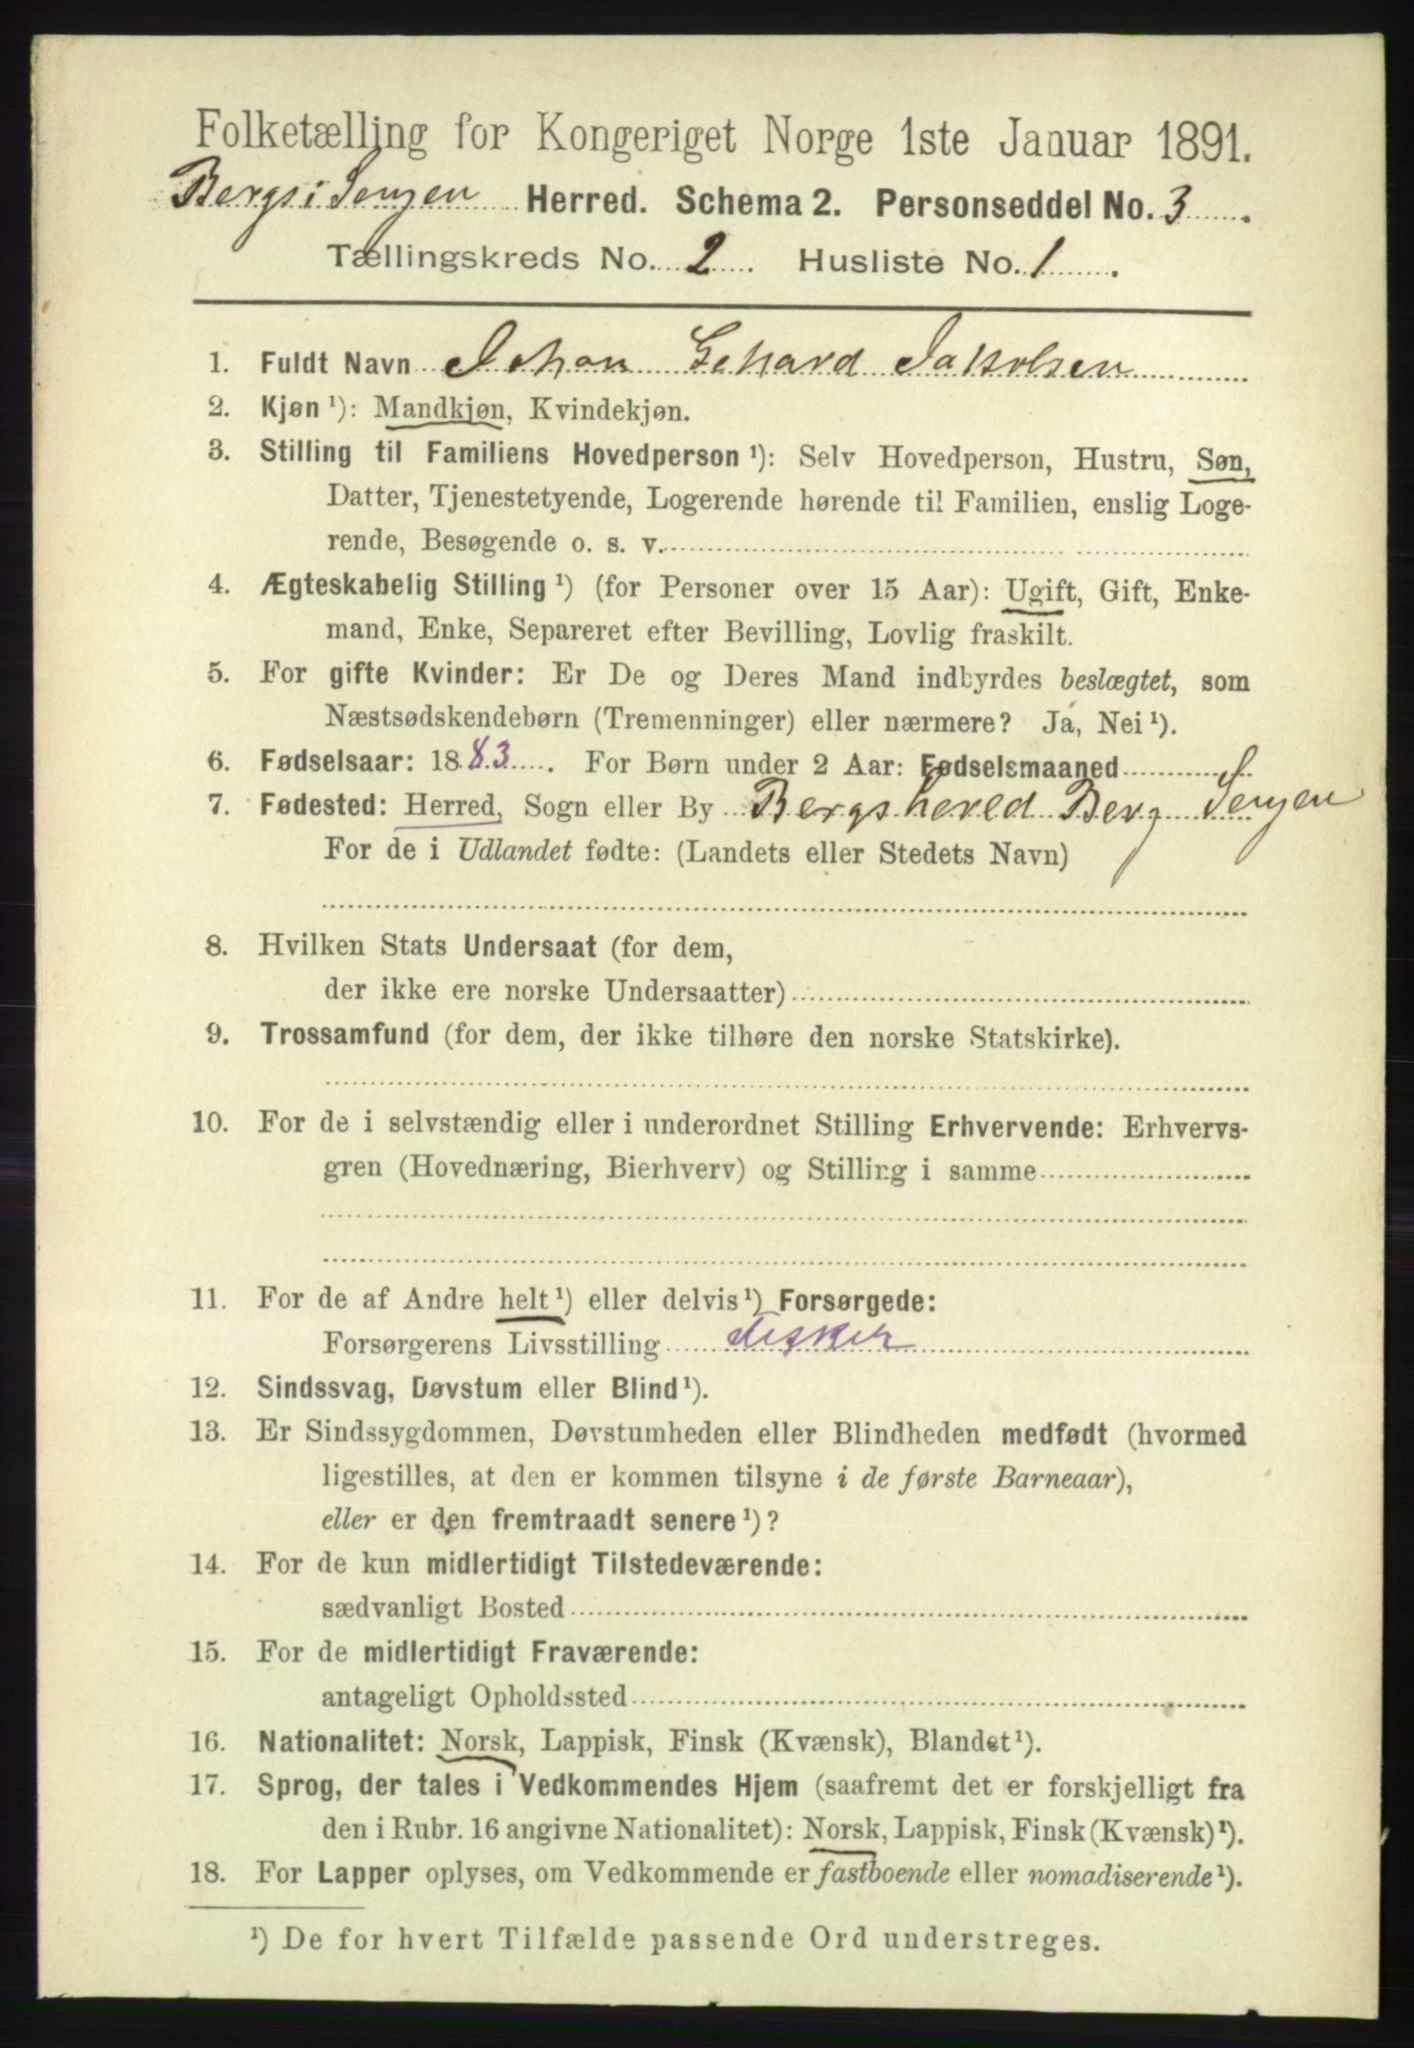 Folketælling for Kongeriget Norge 1ste Januar 1891.
Bergs i Senjen Herred. Schema 2. Personseddel No. 3.
Tællingskreds No. 2. Husliste No. 1.
1. Fuldt Navn Johan Gehard Jakobsen
2. Kjøn ¹): Mandkjøn, Kvindekjøn.
3. Stilling til Familiens Hovedperson ¹): Selv Hovedperson, Hustru, Søn,
Datter, Tjenestetyende, Logerende hørende til Familien, enslig Loge-
rende, Besøgende o. s. v.
4. Ægteskabelig Stilling ¹) (for Personer over 15 Aar): Ugift, Gift, Enke-
mand, Enke, Separeret efter Bevilling, Lovlig fraskilt.
5. For gifte Kvinder: Er De og Deres Mand indbyrdes beslægtet, som
Næstsødskendebørn (Tremenninger) eller nærmere? Ja, Nei ¹).
6. Fødselsaar: 1883. For Børn under 2 Aar: Fødselsmaaned
7. Fødested: Herred, Sogn eller By Bergs hered Berg Senjen
For de i Udlandet fødte: (Landets eller Stedets Navn)
8. Hvilken Stats Undersaat (for dem,
der ikke ere norske Undersaatter)
9. Trossamfund (for dem, der ikke tilhøre den norske Statskirke).
10. For de i selvstændig eller i underordnet Stilling Erhvervende: Erhvervs-
gren (Hovednæring, Bierhverv) og Stilling i samme
11. For de af Andre helt ¹) eller delvis ¹) Forsørgede:
Forsørgerens Livsstilling fisker
12. Sindssvag, Døvstum eller Blind ¹).
13. Er Sindssygdommen, Døvstumheden eller Blindheden medfødt (hvormed
ligestilles, at den er kommen tilsyne i de første Barneaar),
eller er den fremtraadt senere ¹)?
14. For de kun midlertidigt Tilstedeværende:
sædvanligt Bosted
15. For de midlertidigt Fraværende:
antageligt Opholdssted
16. Nationalitet: Norsk, Lappisk, Finsk (Kvænsk), Blandet ¹).
17. Sprog, der tales i Vedkommendes Hjem (saafremt det er forskjelligt fra
den i Rubr. 16 angivne Nationalitet): Norsk, Lappisk, Finsk (Kvænsk) ¹).
18. For Lapper oplyses, om Vedkommende er fastboende eller nomadiserende ¹).
¹) De for hvert Tilfælde passende Ord understreges.